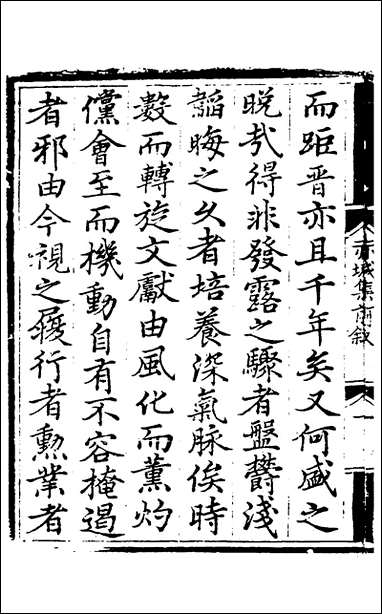 而距晋亦且千年矣又何盛之
晚㢤得非發露之驟者盤欝淺
韜晦之久者培養深氣脉俟時
數而轉旋文獻由風化而薰灼
儻會至而機動自有不容掩遏
者邪由今視之履行者勲業者
赤城集前敘
一